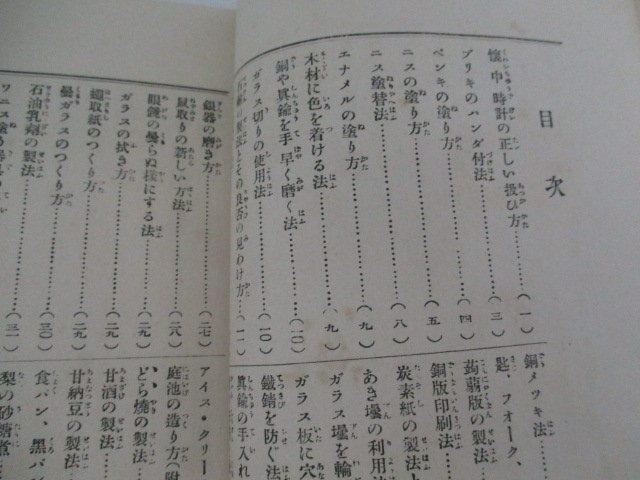 目次
懷中時計の正しい扱ひ方………(一)
ブリキのハンダ付法………(三)
ペンキの塗り方………(四)
ニスの塗り方………(五)
ニス塗替法………(八)
エナメルの塗り方………(九)
木材に色を着ける法………(九)
銅や眞鍮を手早く磨く法………(一〇)
ガラス切りの使用法………(一〇)
製法とその良否の見わけ方………(一一)
銅メッキ法
匙、フォーク、
蒟蒻版の製法
銅版印刷法
炭素紙の製法
あき壜の利用法
ガラス壜を輪
ガラス板に穴
鐵錆を防ぐ法
眞鍮の手入れ
銀器の磨き方………(二七)
鼠取りの新しい方法………(二八)
眼鏡の曇らぬ樣にする法………(二九)
ガラスの拭き方………(二九)
蠅取紙のつくり方………(二九)
曇ガラスのつくり方………(二九)
石油乳劑の製法………(三〇)
ワニス塗る…………(三一)
アイス・クリー
庭池の造り方(附
どら燒の製法
甘酒の製法
甘納豆の製法
食パン、黑パ
梨の砂糖煮